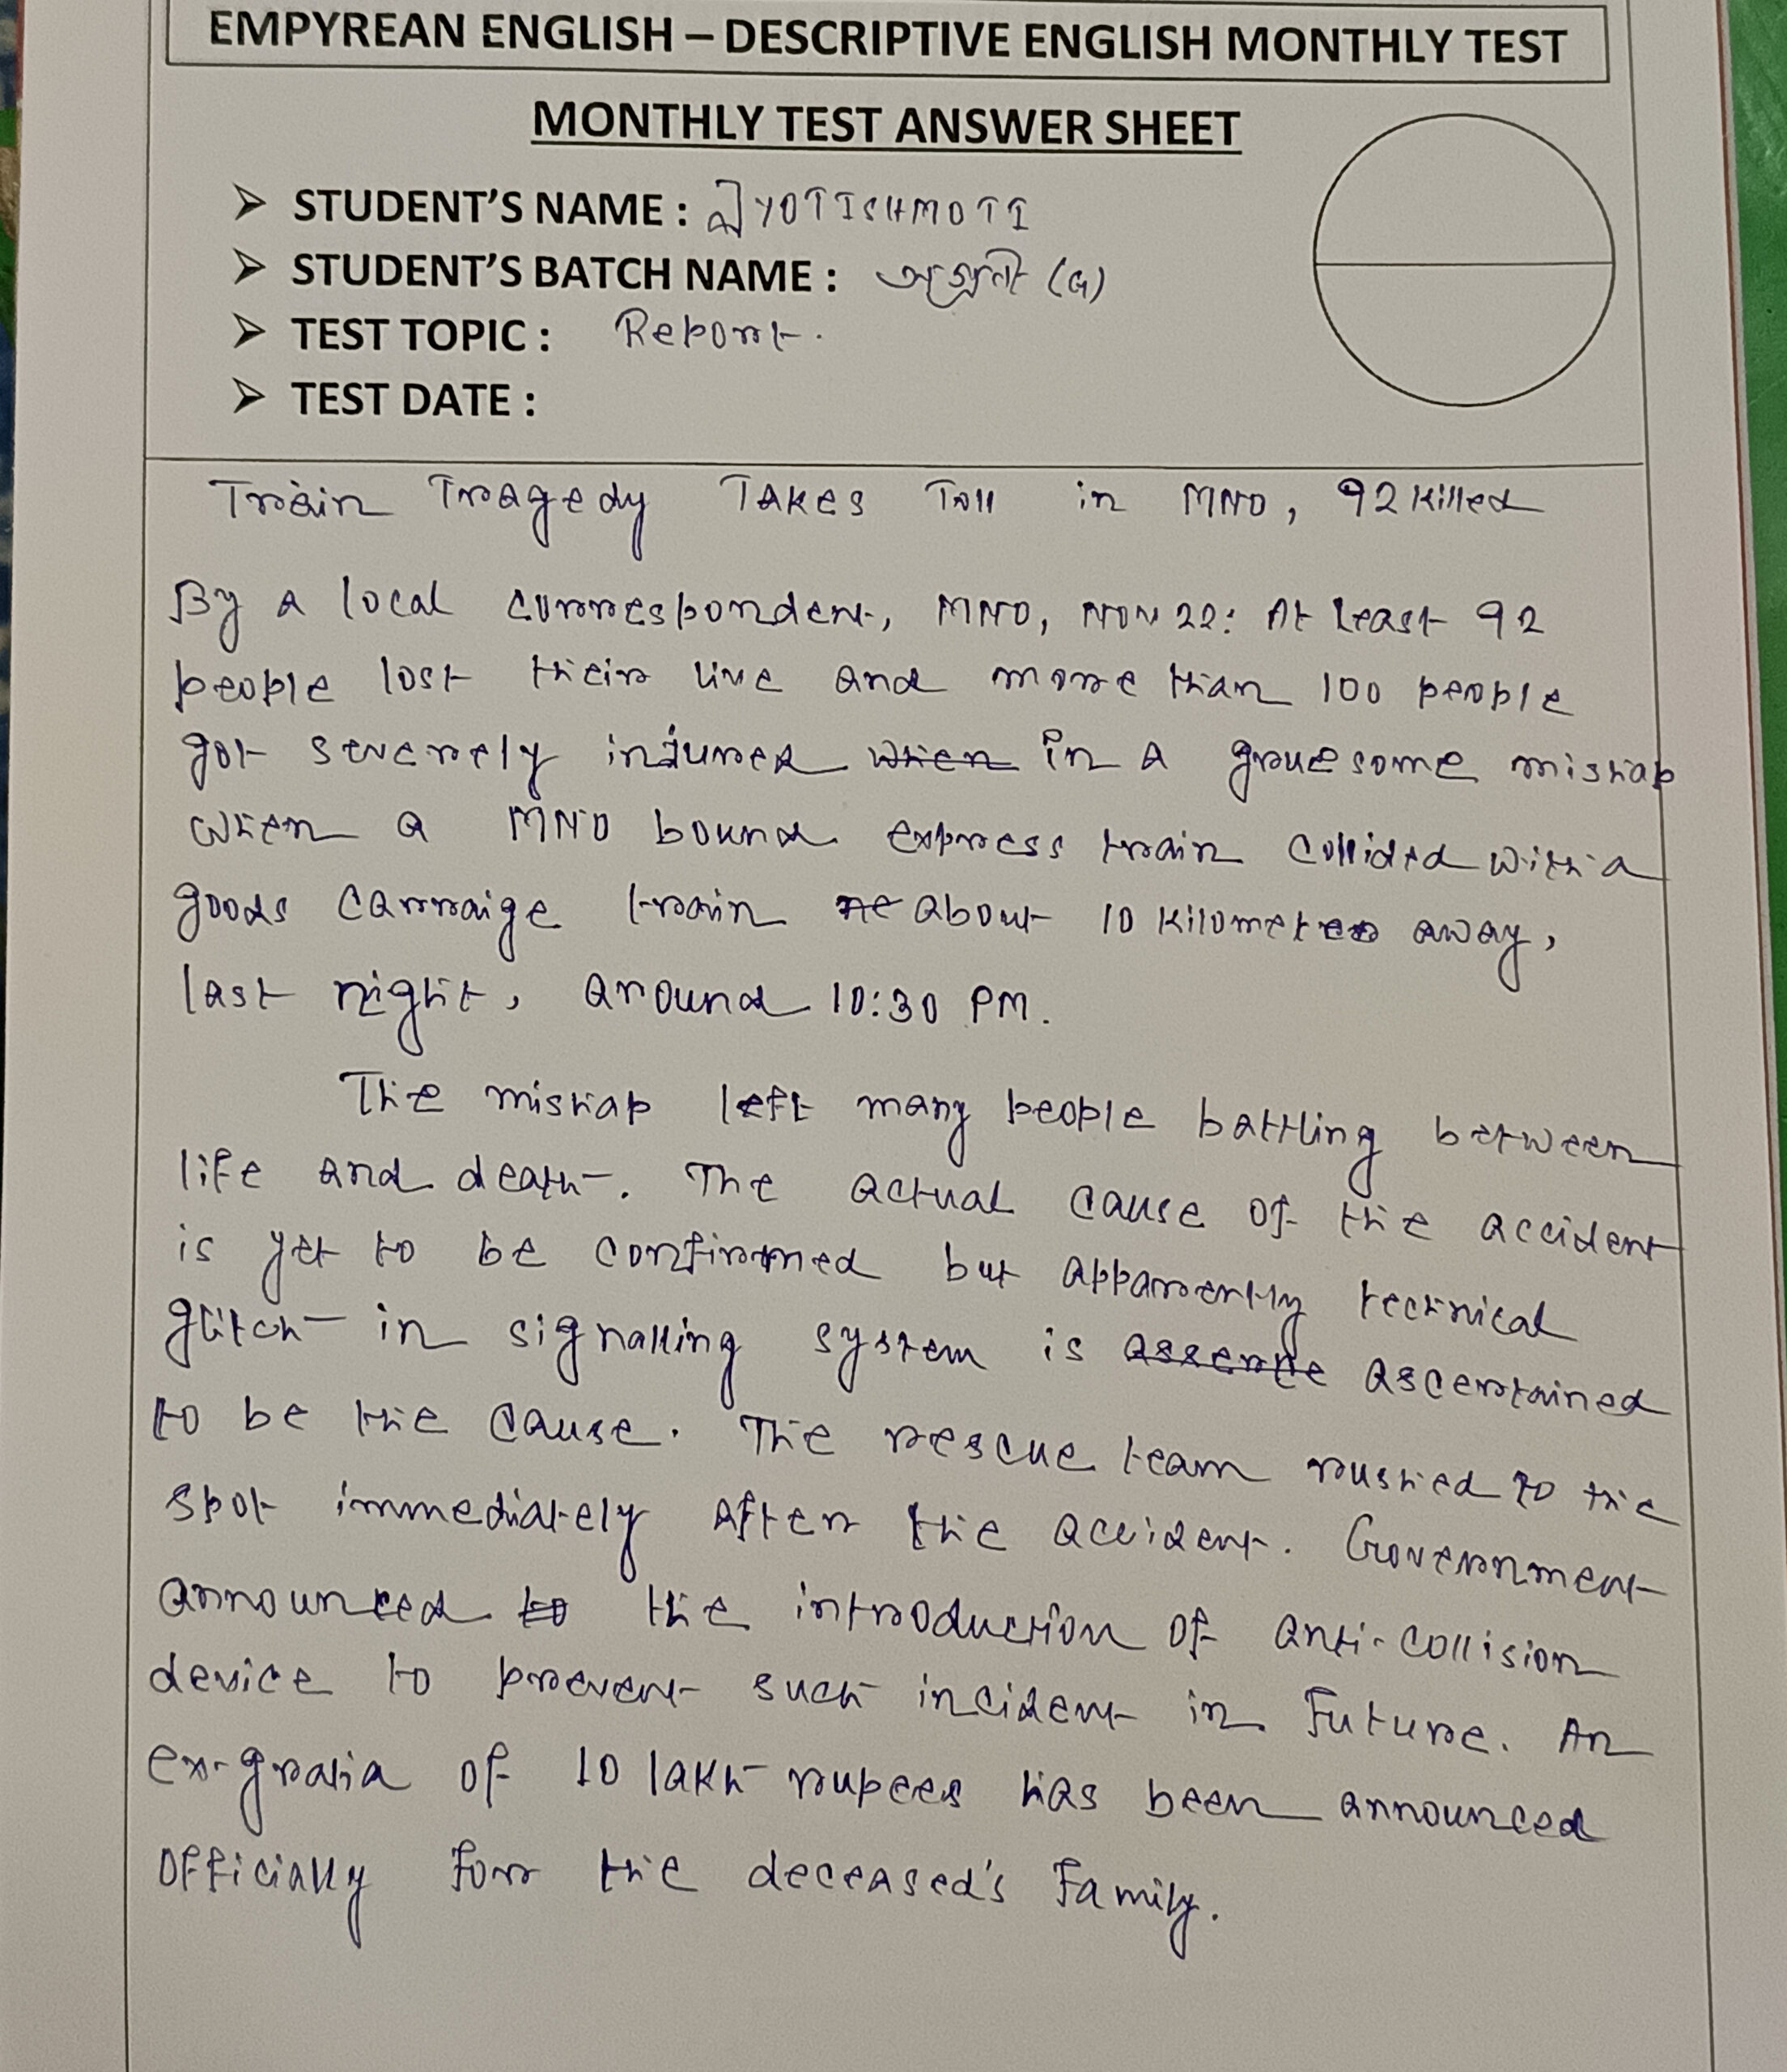 EMPYREAN ENGLISH – DESCRIPTIVE ENGLISH MONTHLY TEST
MONTHLY TEST ANSWER SHEET
➢ STUDENT'S NAME : JYOTISHMOTI
➢ STUDENT'S BATCH NAME : অগ্রণী (G)
➢ TEST TOPIC : Report.
➢ TEST DATE :
Train Tragedy Takes Toll in MNO, 92 killed
By a local correspondent, MNO, Nov 22: At least 92
people lost their live and more than 100 people
got severely injured when in a gruesome mishap
when a MNO bound express train collided with a
goods carraige train about 10 kilometre away,
last night, around 10:30 PM.
The mishap left many people battling between
life and death. The actual cause of the accident
is yet to be confirmed but apparently technical
glitch in signalling system is ascertained
to be the cause. The rescue team rushed to the
spot immediately after the accident. Government
announced to the introduction of anti-collision
device to prevent such incident in future. An
ex-gratia of 10 lakh rupees has been announced
officially for the deceased's family.